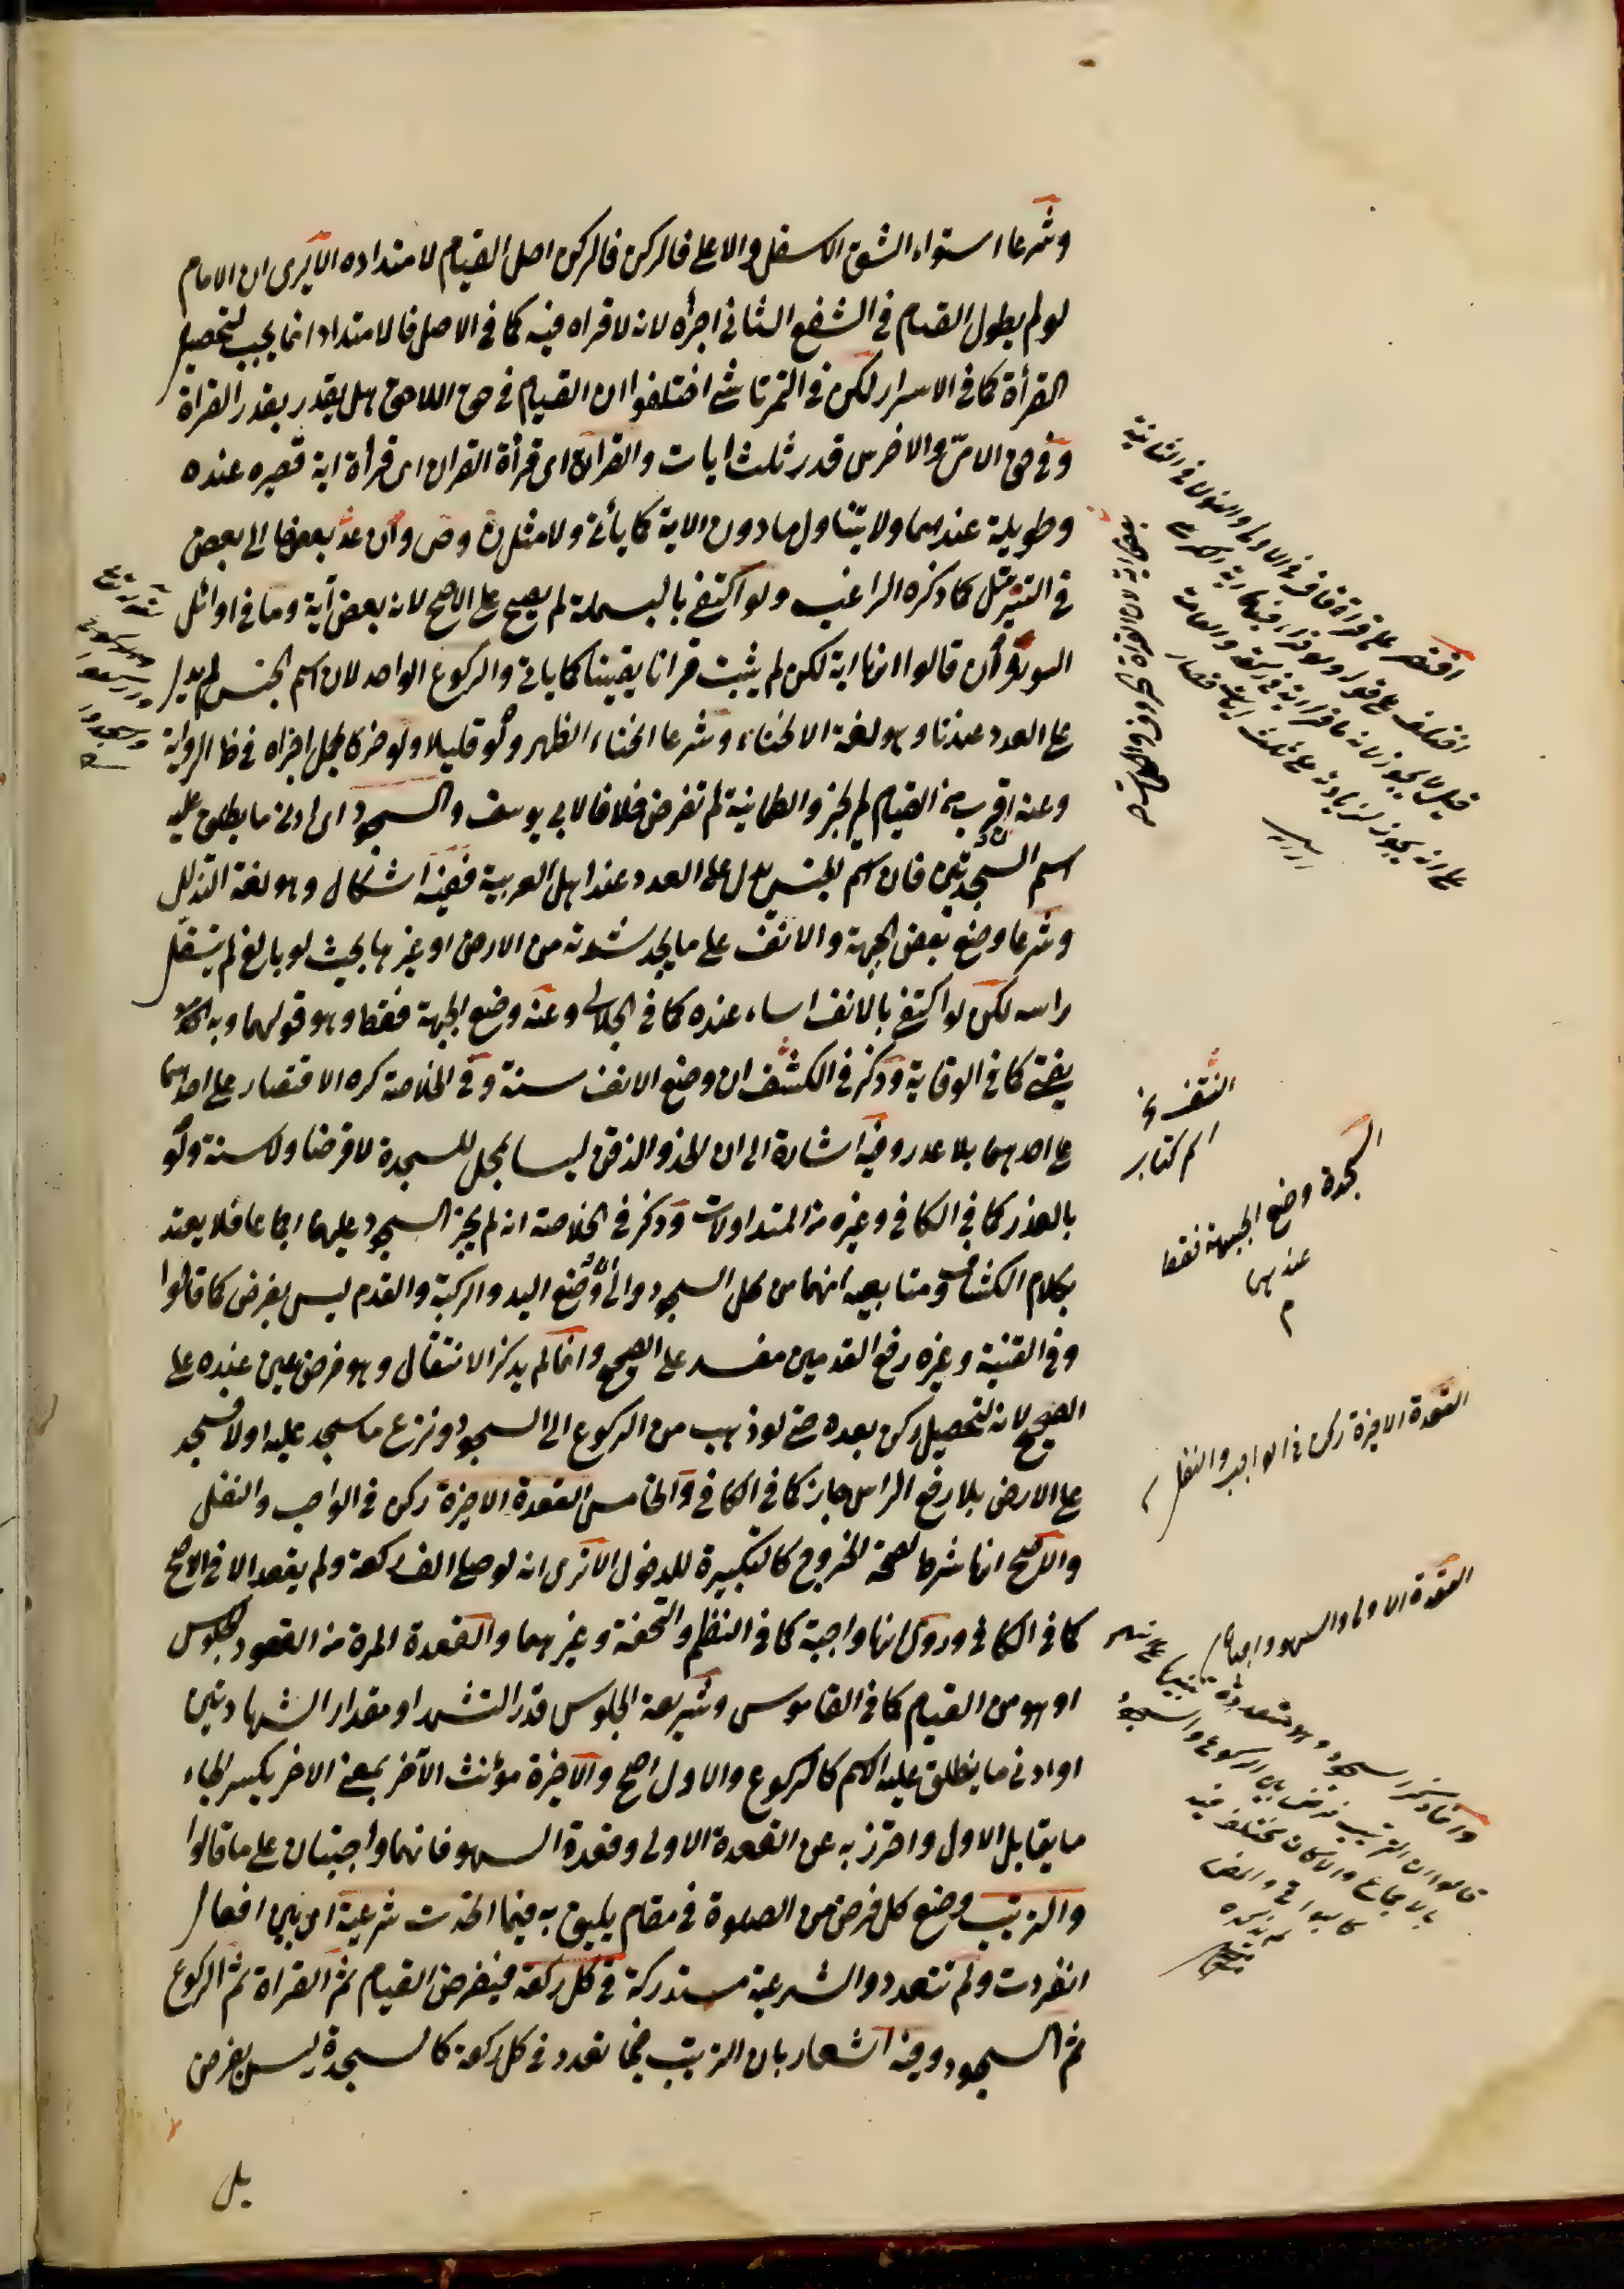 وشرعا استواء الشق الاسفل والاعلى فالركن فالركن اصل القيام لا امتداده الا يرى ان الامام
لو لم يطول القيام في الشفع الثاني اجزأه لانه لا قراه فيه كما في الاصل فالامتداد انما يجب لتحصيل
القرأة كما في الاسرار لكن في التمرتاشي اختلفوا ان القيام في حق اللاحق هل يقدر بقدر القراة
وفي حق الامي والاخرس قدر ثلث ايات والقرأة اى قرأة القران اى قرأة اية قصيره عنده
وطويلة عندهما ولا يتناول ما دون الاية كما يأتي ولا مثل ن وص وان عد بعضها الى بعض
في التنزيل كما ذكره الراغب ولو اكتفى بالبسملة لم يصح على الاصح لانه بعض آية وما في اوائل
السورة وان قالوا انها اية لكن لم يثبت قرانا يقينا كما ياتي والركوع الواحد لان اسم الجنس لم يدل
على العدد عندنا وهو لغة الانحناء وشرعا انحناء الظهر ولو قليلا ولو خر كالجمل اجزاه في ظ الرواية
وعنه اقرب من القيام لم يجز والطمانية لم تفرض خلافا لابي يوسف والسجود اى ادنى ما يطلق عليه
اسم السجدتين فان اسم الجنس يدل على العدد عند اهل العربية ففيه اشكال وهو لغة التذلل
وشرعا وضع بعض الجبهة والانف على ما يجد شدته من الارض او غيرها بحيث لو بالغ لم يتسفل
راسه لكن لو اكتفى بالانف اساء عنده كما في الجلالى وعنه وضع الجبهة فقط وهو قولهما وبه
يفتى كما في الوقاية وذكر في الكشف ان وضع الانف سنة وفي الخلاصة كره الاقتصار على احدهما
على احدهما بلا عذر وفيه اشارة الى ان الخد والذقن ليسا بمحل للسجدة لا فرضا ولا سنة ولو
بالعذر كما في الكافي وغيره من المتداولات وذكر في الخلاصة انه لم يجز السجود عليهما اجماعا فلا يعتد
بكلام الكشاف ومتابعيه انهما من محل السجود والى ان وضع اليد والركبة والقدم ليس بفرض كما قالوا
وفي القنية وغيره رفع القدمين مفسد على الصحيح وانما لم يذكر الانتقال وهو فرض عين عنده على
الصحيح لانه لتحصيل ركن بعده حتى لو ذهب من الركوع الى السجود ونزع ما سجد عليه اولا فسجد
على الارض بلا رفع الراس جاز كما في الكافي والخامس القعدة الاخيرة ركن في الواجب والنفل
والاصح انها شرط لصحة الخروج كالتكبيرة للدخول الا ترى انه لو صلى الف ركعة ولم يقعد الا في الاصح
كما في الكافي وروى انها واجبة كما في النظم والتحفة وغيرهما والقعدة المرة من القعود الجلوس
او هو من القيام كما في القاموس وشريعة الجلوس قدر التشهد او مقدار الشهادتين
او ادنى ما ينطلق عليه الاسم كالركوع والاول اصح والاخيرة مؤنث الآخر بمعنى الاخر بكسر الخاء
ما يقابل الاول واحترز به عن القعدة الاولى وقعدة السهو فانهما واجبتان على ما قالوا
والترتيب وضع كل فرض من الصلوة في مقام يليق به فيما اتحدت شرعيته اى بين افعال
انفردت ولم تتعدد والشرعية مستدركة في كل ركعة فيفرض القيام ثم القراة ثم الركوع
ثم السجود وفيه اشعار بان الترتيب فيما تعدد في كل ركعة كالسجدة ليس بفرض
بل
السجدة وضع الجبهة فقط
عندهما
القعدة الاخيرة ركن في الواجب والنفل
القعدة الاولى والسهو واجبتان